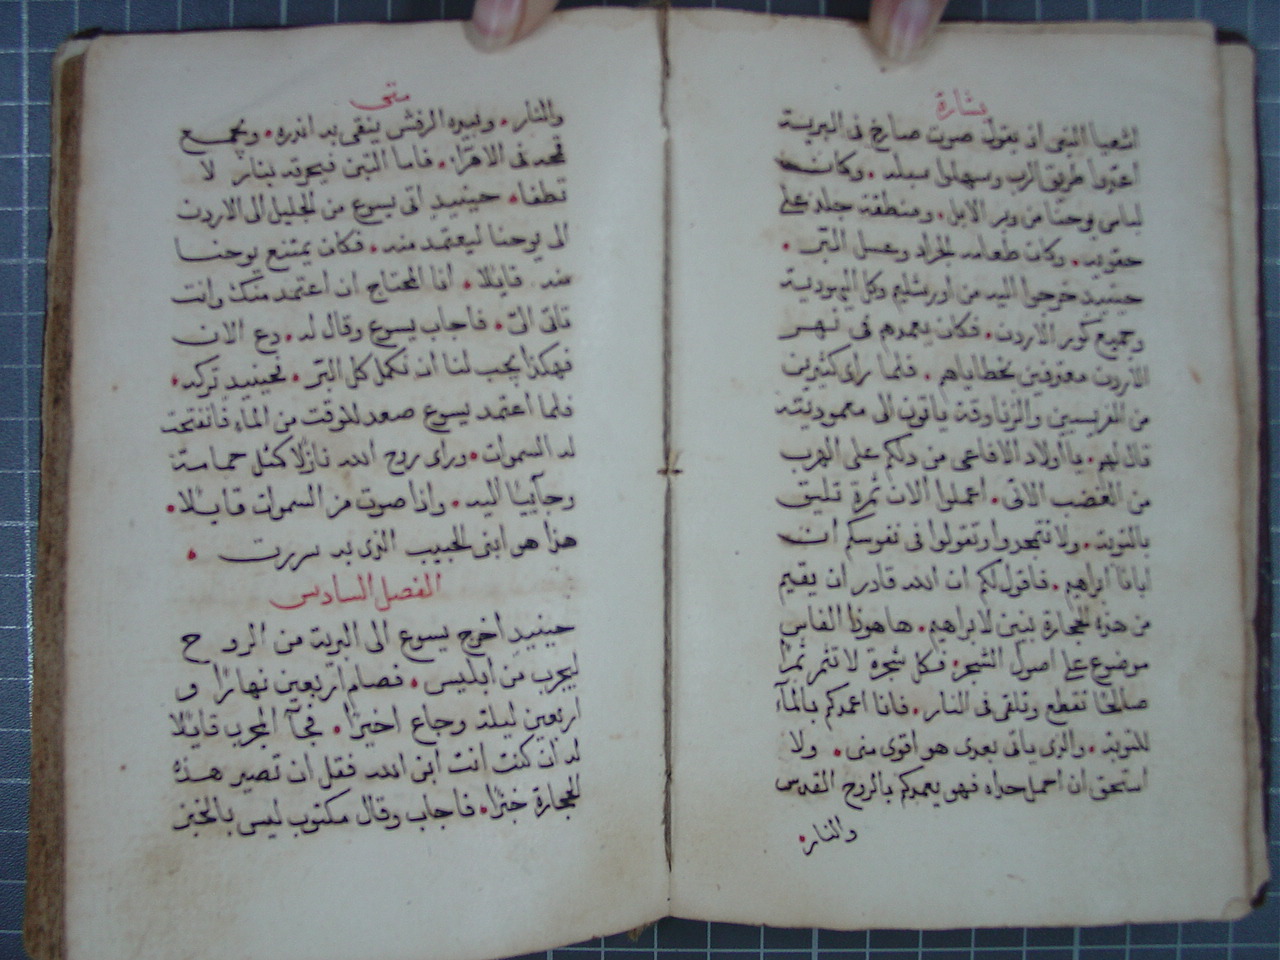 بشارة
اشعيا النبي اذ يقول صوت صارخ في البرية
اعتدوا طريق الرب وسهلوا سبله . وكان
لباس يوحنا من وبر الابل . ومنطقة جلد على
حقويه . وكان طعامه الجراد وعسل البر .
حينيذ خرجوا اليه من اورشليم وكل اليهودية
وجميع كور الاردن . فكان يعمدهم في نهر
الاردن معترفين بخطاياهم . فلما راى كثيرين
من الفريسيين والزنادقة ياتون الى معموديته
قال لهم . يا اولاد الافاعي من دلكم على الهرب
من الغضب الاتي . اعملوا الان ثمرة تليق
بالتوبة . ولا تتمجدوا وتقولوا في نفوسكم ان
ابانا ابراهيم . فاقول لكم ان الله قادر ان يقيم
من هذه الحجارة بنين لابراهيم . هاهوذا الفاس
موضوع على اصول الشجر . فكل شجرة لا تثمر ثمرا
صالحا تقطع وتلقى في النار . فانا اعمدكم بالمآء
للتوبة . والذي ياتي بعدي هو اقوى مني . ولا
استحق ان احمل حداه فهو يعمدكم بالروح القدس
والنار .
متى
والنار . وبيده الرفش ينقي به اندره . ويجمع
قمحه في الاهرآ . فاما التبن فيحرقه بنار لا
تطفا . حينيذ اتى يسوع من الجليل الى الاردن
الى يوحنا ليعتمد منه . فكان يمتنع يوحنا
منه قايلا . انا المحتاج ان اعتمد منك وانت
تاتي الي . فاجاب يسوع وقال له . دع الان
فهكذا يجب لنا ان نكمل كل البر . فحينيذ تركه .
فلما اعتمد يسوع صعد للوقت من الماء فانفتحت
له السموات . وراى روح الله نازلا كمثل حمامة
وجآييا اليه . واذا صوت من السموات قايلا .
هذا هو ابني الحبيب الذي به سررت .
الفصل السادس
حينيذ اخرج يسوع الى البرية من الروح
ليجرب من ابليس . فصام اربعين نهارا و
اربعين ليلة وجاع اخيرا . فجآ المجرب قايلا
له ان كنت انت ابن الله فقل ان تصير هذه
الحجارة خبزا . فاجاب وقال مكتوب ليس بالخبز